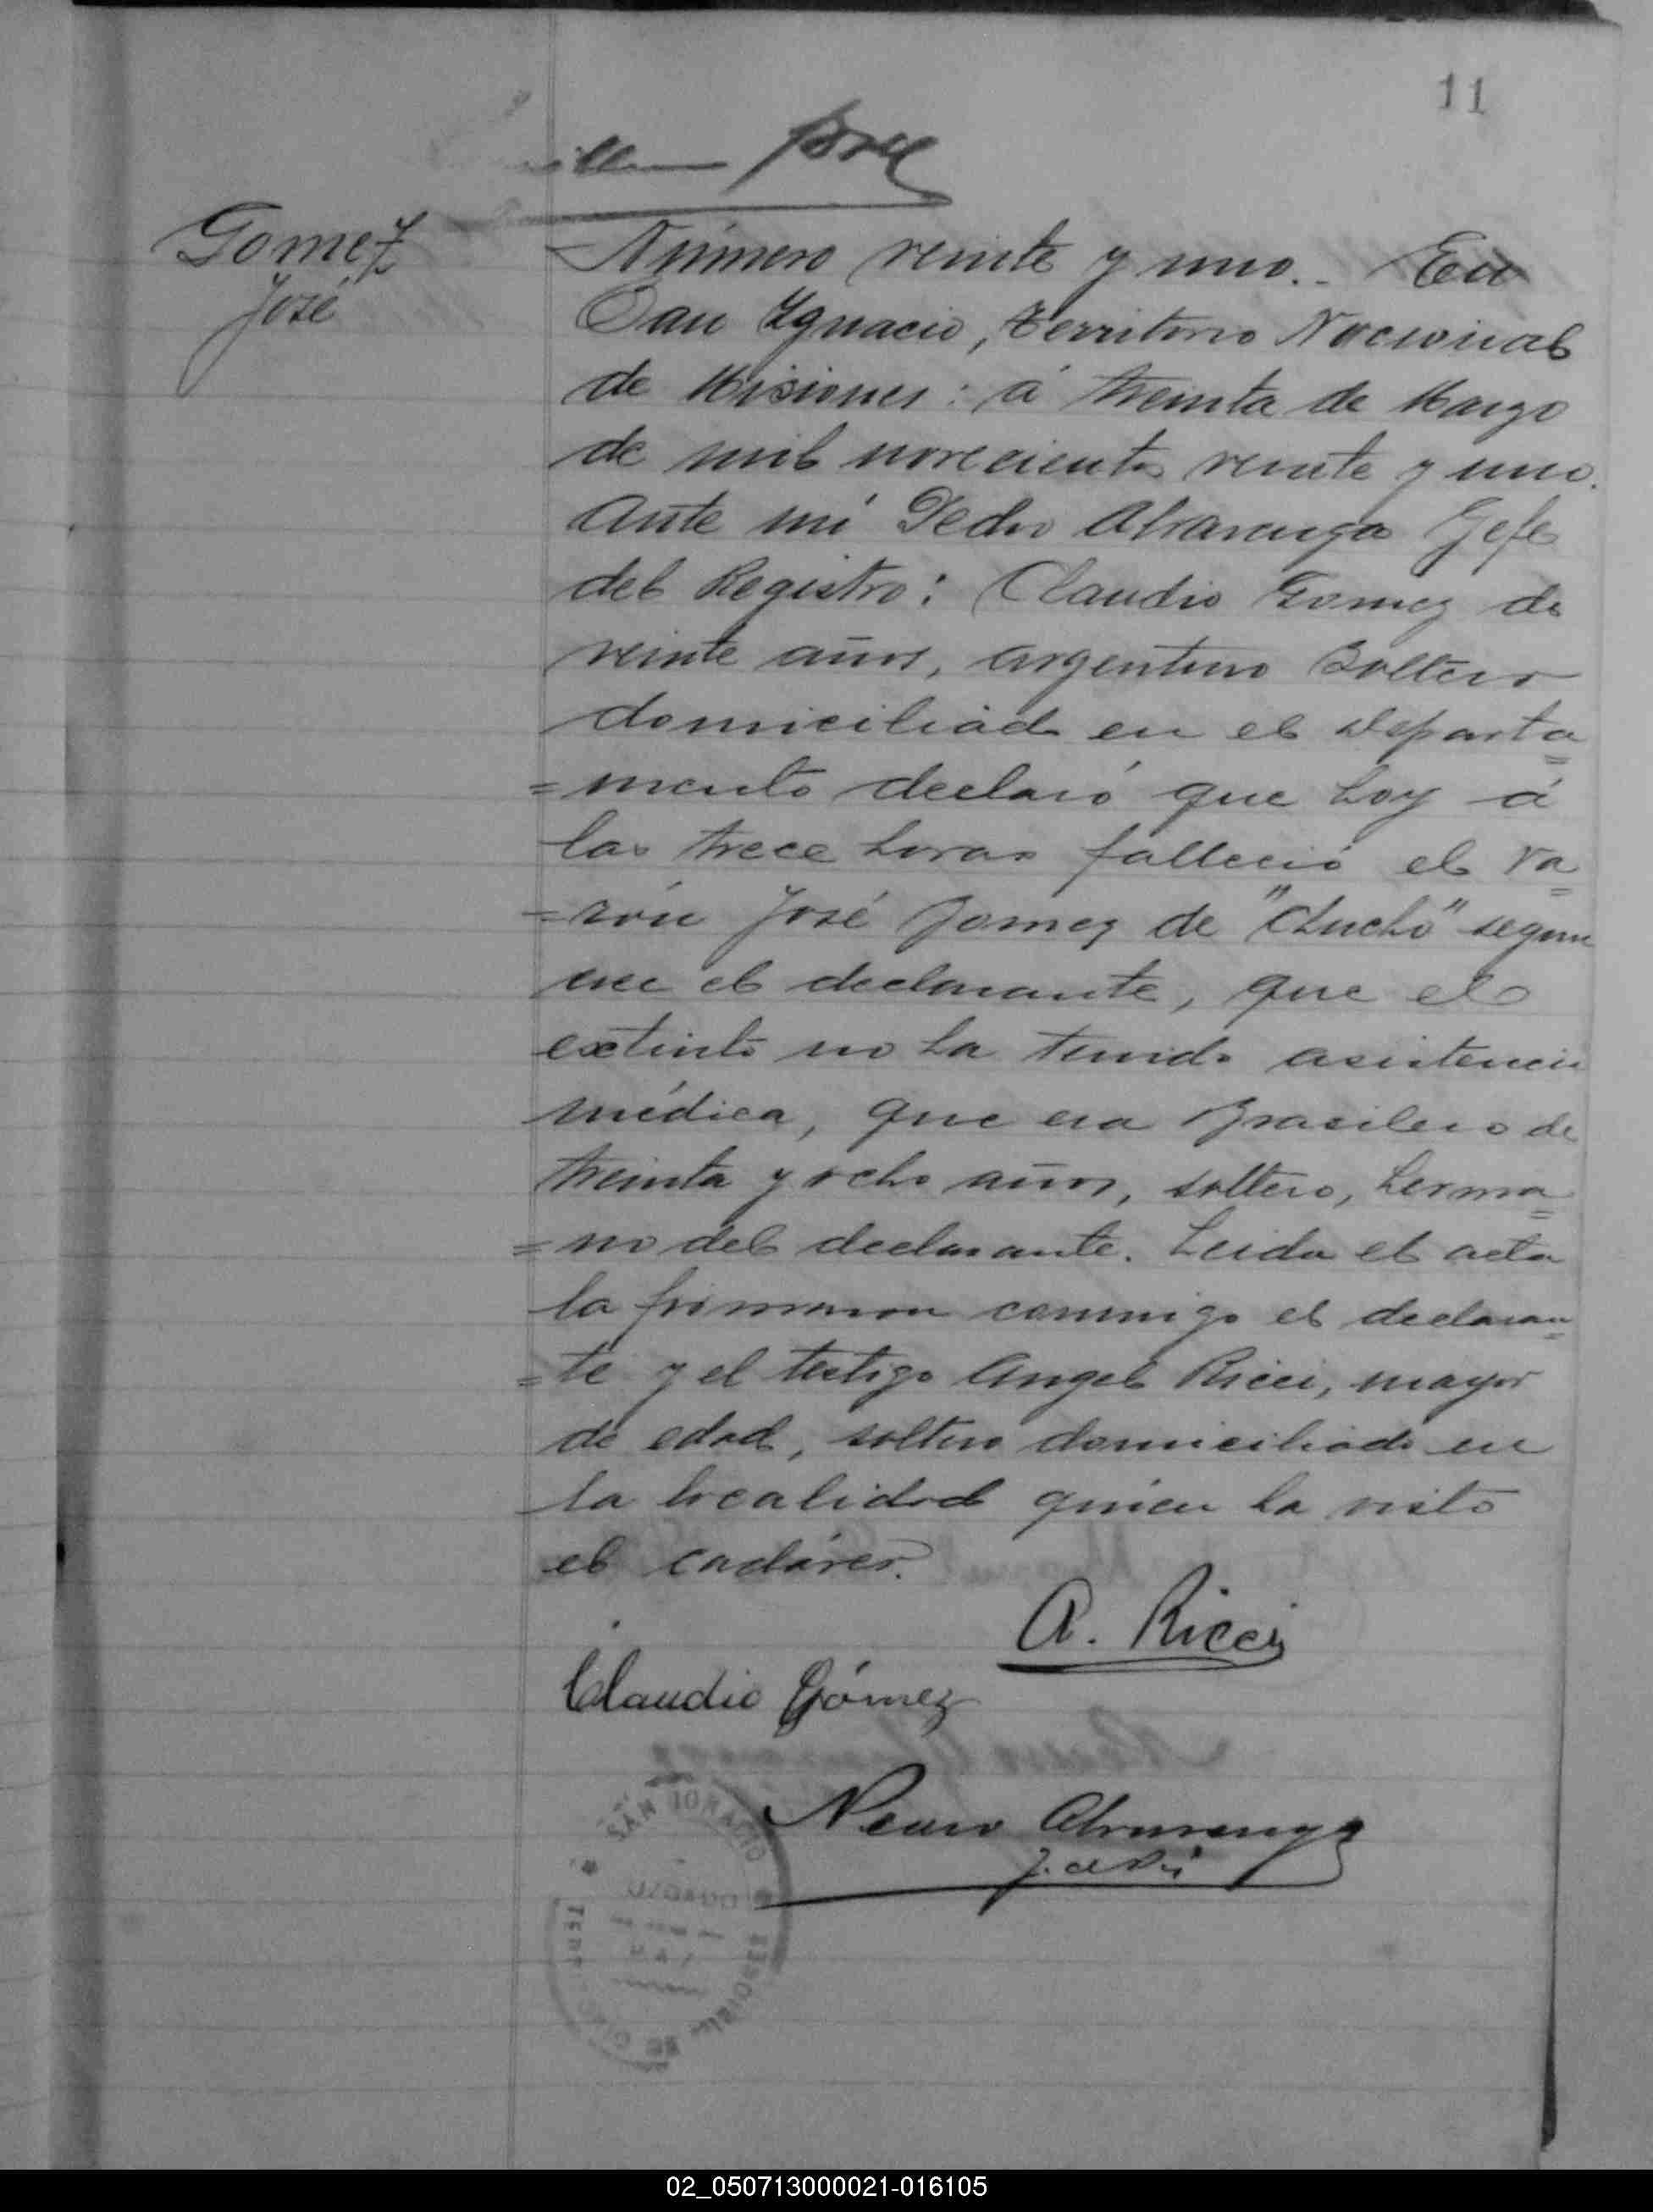 11
Gomez
José
Número veinte y uno.. En
San Ygnacio, Territorio Nacional
de Misiones: á treinta de Marzo
de mil novecientos veinte y uno.
Ante mi Pedro Alvarenga Gefe
del Registro: Claudio Gomez de
veinte años, argentino soltero
domiciliado en el departa
=mento declaró que hoy á
las trece horas falleció el va
=rón José Gomez de "Chucho" segun
el declarante, que el
extinto no ha tenido asistencia
médica, que era Brasilero de
treinta y ocho años, soltero, herma
=no del declarante. Leida el acta
la firmaron conmigo el declaran
=te y el testigo Angel Ricci, mayor
de edad, soltero domiciliado en
la localidad quien ha visto
el cadáver.
A. Ricci
Claudio Gómez
Pedro Alvarenga
SAN IGNACIO
02_050713000021-016105